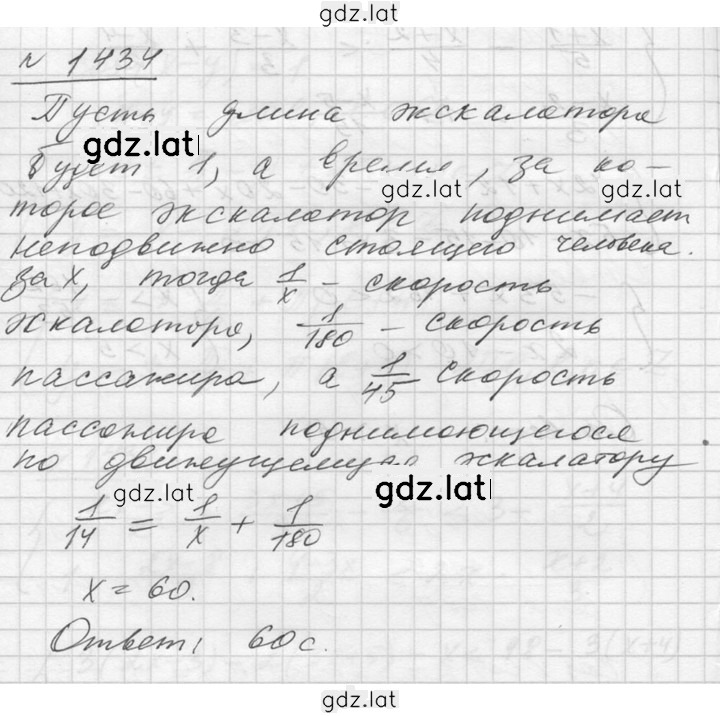 gdz.lat
№ 1434
Пусть длина экскалатора
gdz.lat
будет 1, а время, за ко-
gdz.lat gdz.lat
торое экскалатор поднимает
неподвижно стоящего человека.
за x, тогда 1/x - скорость
эжкалатора, 1/180 - скорость
пассажира, а 1/45 скорость
пассажира поднимающегося
по движущемуся эскалатору.
gdz.lat gdz.lat
1/14 = 1/x + 1/180
x = 60.
Ответ: 60 с.
gdz.lat